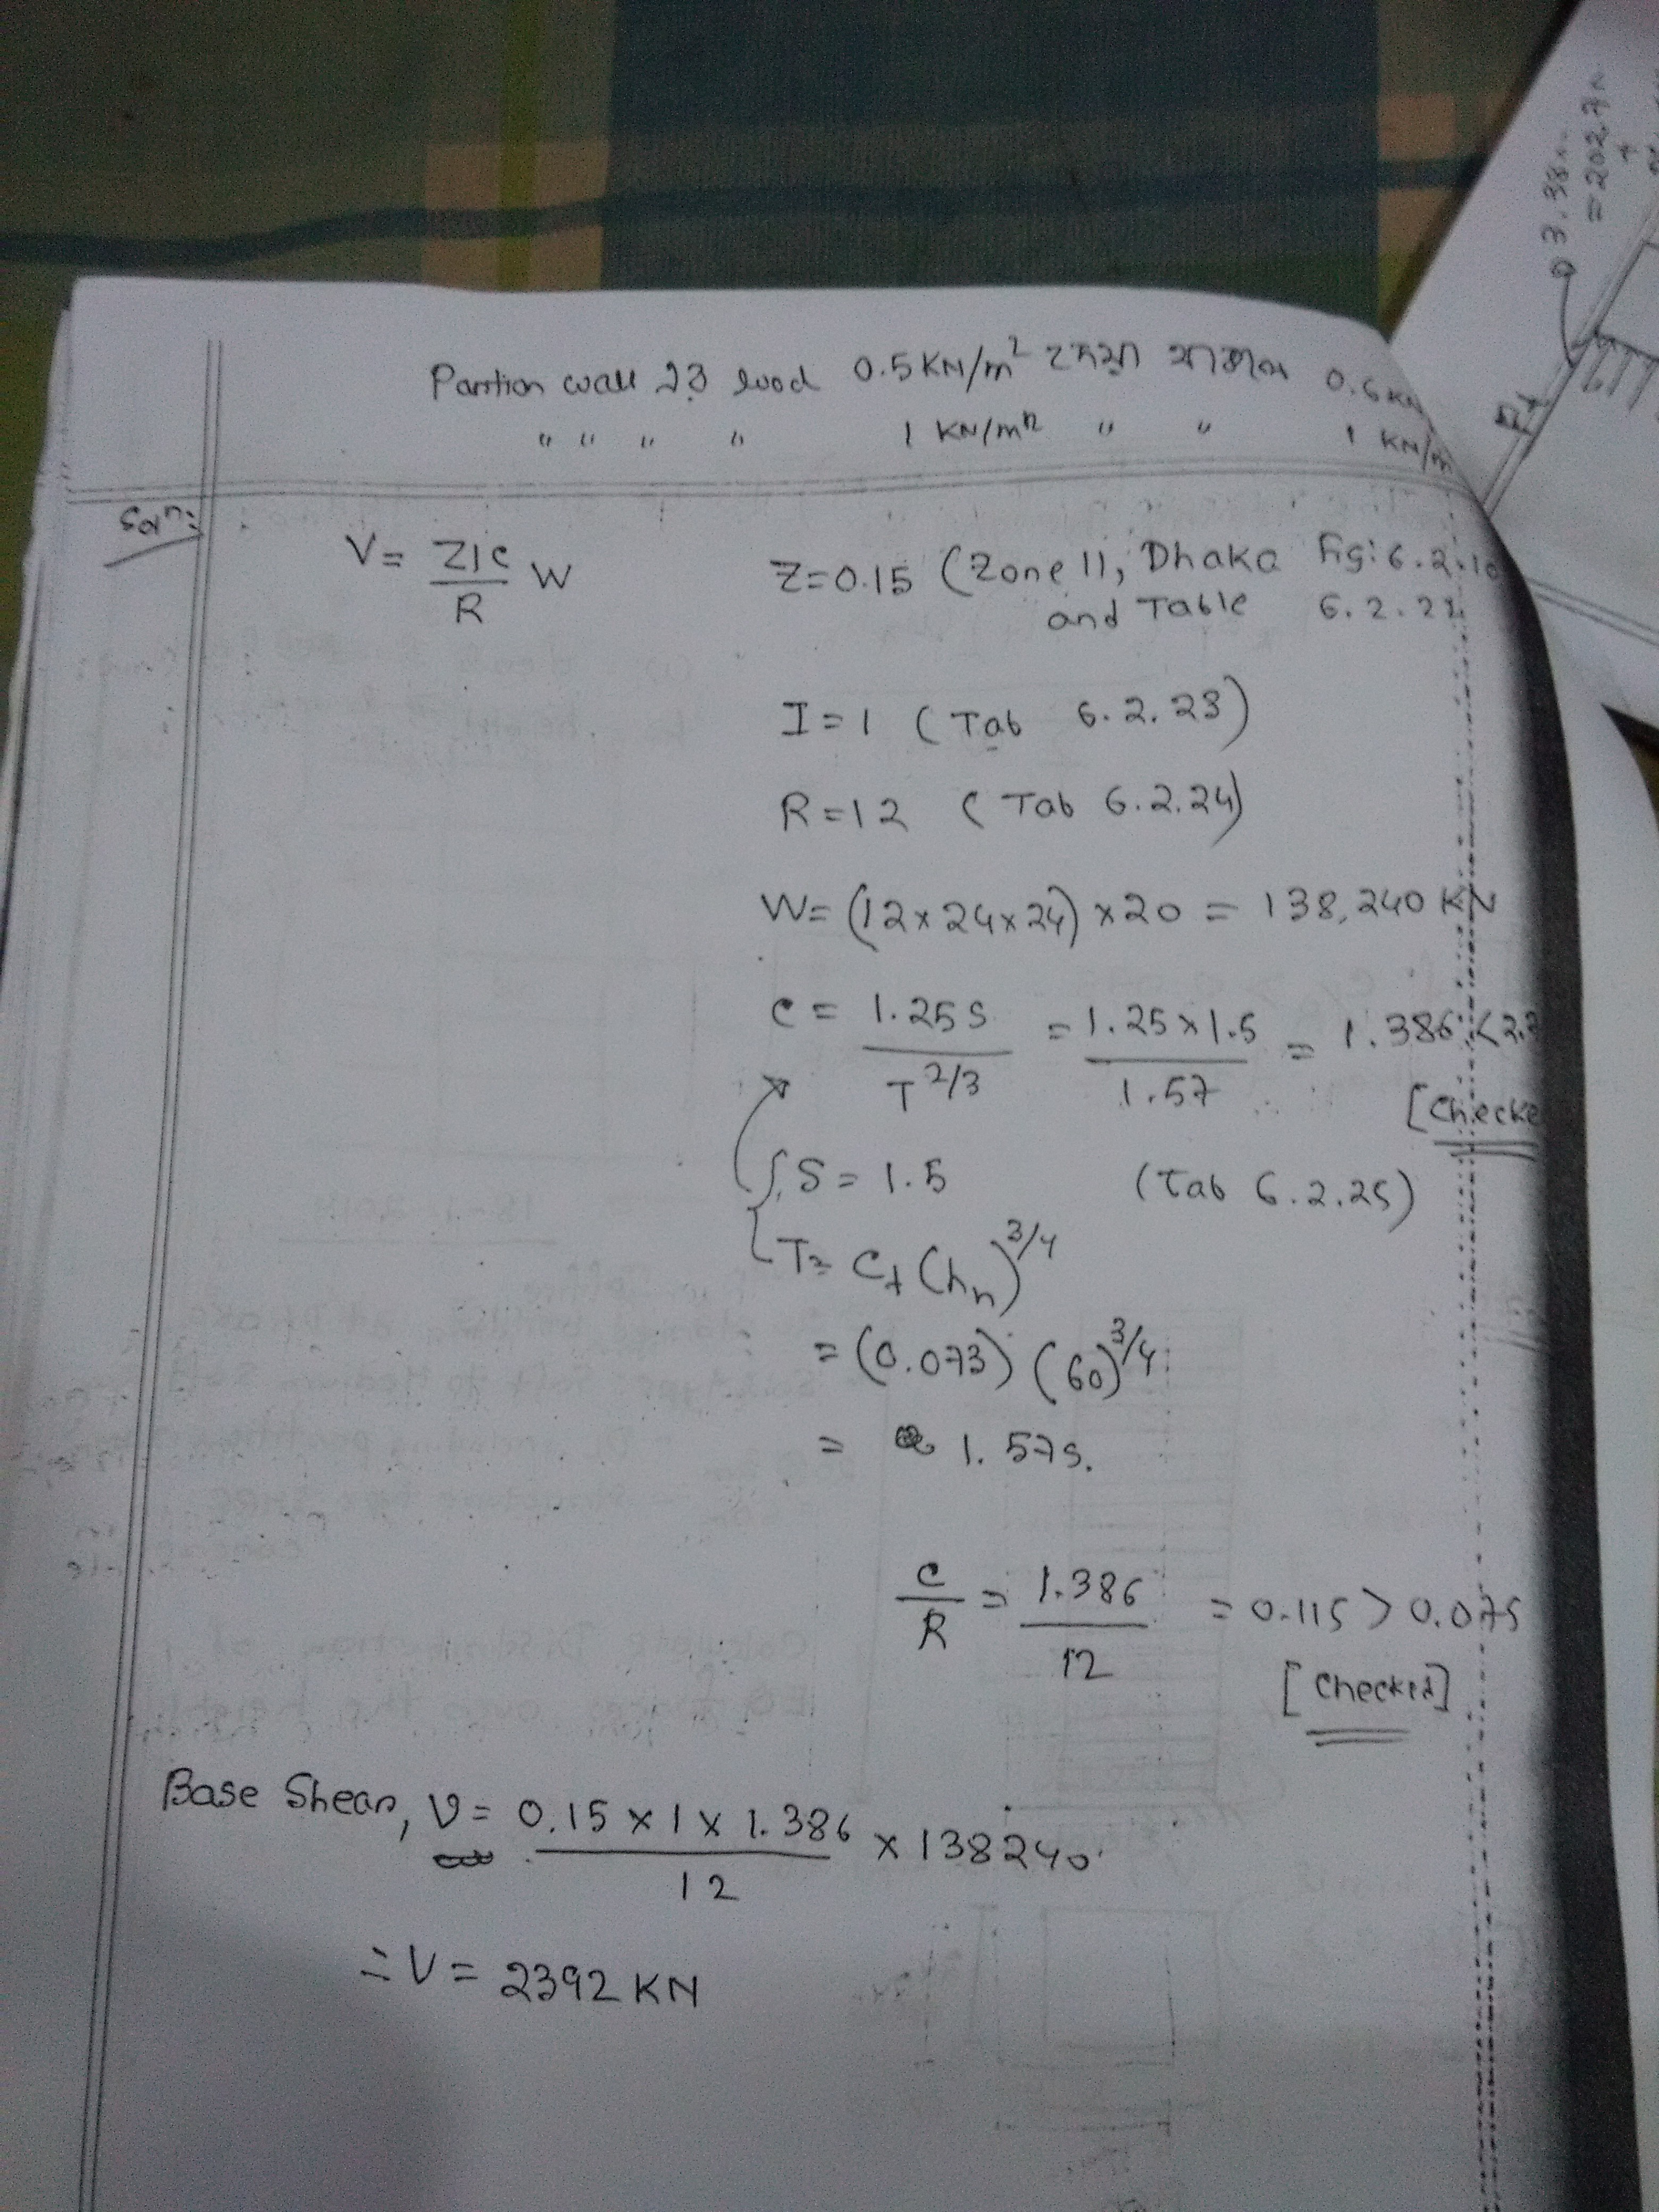 Parrtion wall এর load 0.5 KN/m² 0.6 KN
" " " " 1 KN/m² " " 1 KN/m
Solⁿ:
V = ZIC/R W
Z=0.15 (Zone II, Dhaka Fig: 6.2.10
and Table 6.2.22
I = 1 (Tab 6.2.23)
R = 12 (Tab 6.2.24)
W = (12×24×24) ×20 = 138,240 KN
C = 1.25S/T^2/3 = 1.25×1.5/1.57 = 1.386 <
[Checke
S = 1.5 (Tab 6.2.25)
T= Ct (hn)^3/4
= (0.073) (60)^3/4
= 1.57s.
C/R = 1.386/12 = 0.115 > 0.075
[Checked]
Base Shear, V = 0.15 × 1 × 1.386/12 × 138240
= V = 2392 KN
03.38
= 202.7
+